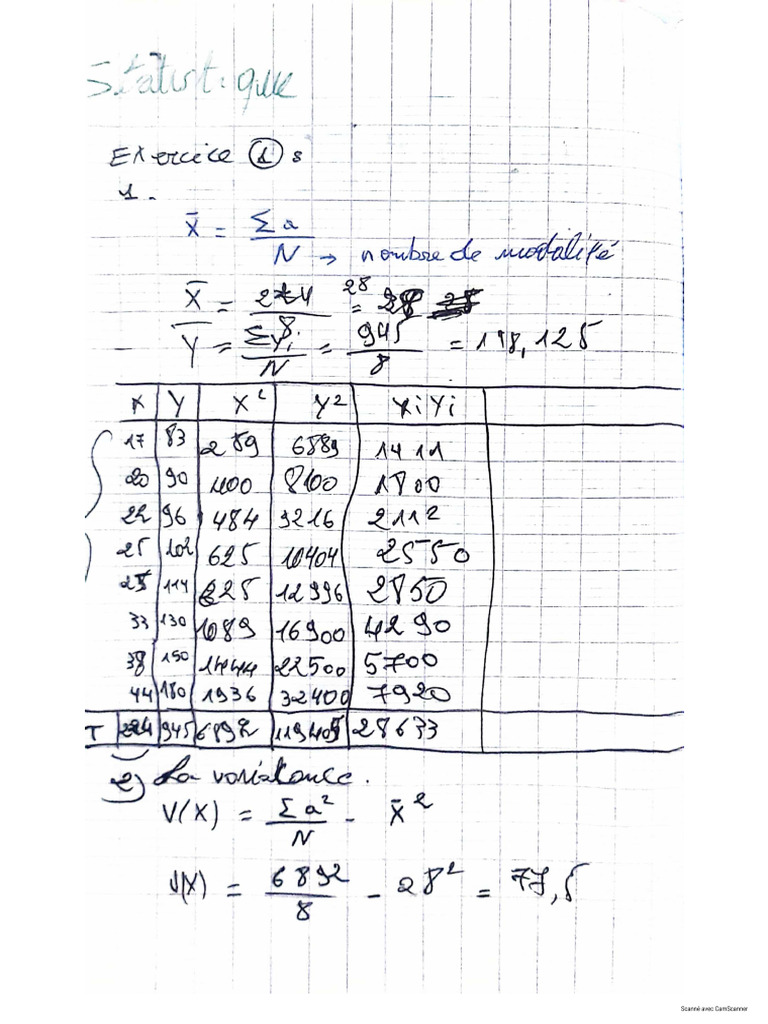 Statistique
Exercice 1 :
1.
X̄ = Σa / N → nombre de modalité
X̄ = 224 / 8 = 28
Ȳ = ΣYi / N = 945 / 8 = 118,125
X Y X² Y² XiYi
17 83 289 6889 1411
20 90 400 8100 1800
22 96 484 9216 2112
25 102 625 10404 2550
25 114 625 12996 2850
33 130 1089 16900 4290
38 150 1444 22500 5700
44 180 1936 32400 7920
T 224 945 6892 119405 28633
2) La variatance.
V(X) = Σa² / N - X̄²
V(X) = 6892 / 8 - 28² = 77,5
Scanné avec CamScanner